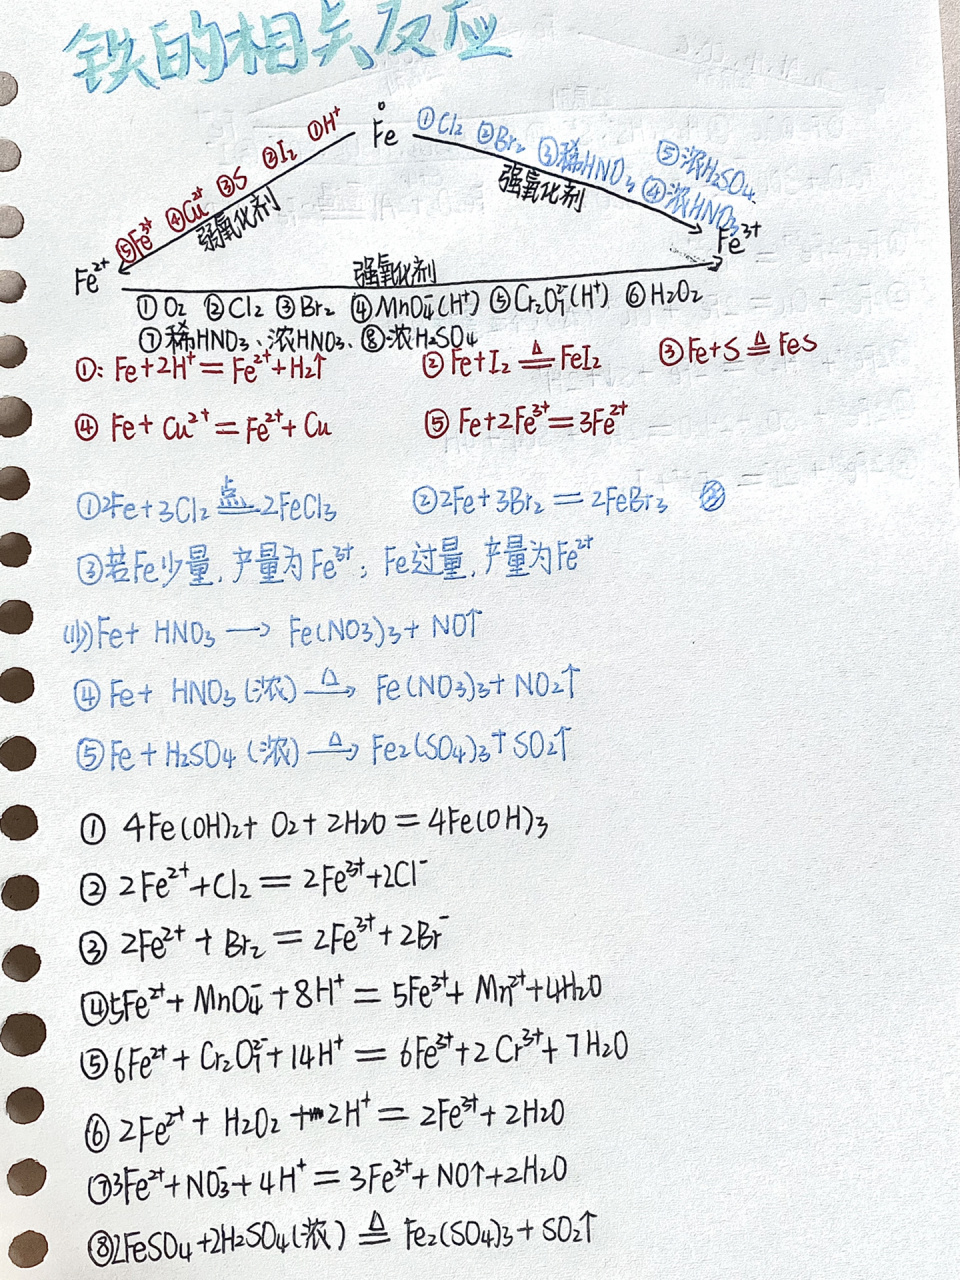 铁的相关反应
Fe
①H⁺ ②I₂ ③S ④Cu²⁺ ⑤Fe³⁺
弱氧化剂
①Cl₂ ②Br₂ ③稀HNO₃ ④浓HNO₃ ⑤浓H₂SO₄
强氧化剂
Fe²⁺
Fe³⁺
强氧化剂
①O₂ ②Cl₂ ③Br₂ ④MnO₄⁻(H⁺) ⑤Cr₂O₇²⁻(H⁺) ⑥H₂O₂
⑦稀HNO₃、浓HNO₃、⑧浓H₂SO₄
①: Fe+2H⁺=Fe²⁺+H₂↑ ②Fe+I₂ ≜ FeI₂ ③Fe+S ≜ FeS
④ Fe+Cu²⁺=Fe²⁺+Cu ⑤ Fe+2Fe³⁺=3Fe²⁺
①2Fe+3Cl₂ 点= 2FeCl₃ ②2Fe+3Br₂=2FeBr₃
③若Fe少量,产量为Fe³⁺; Fe过量,产量为Fe²⁺
(少)Fe+ HNO₃ → Fe(NO₃)₃+NO↑
④Fe+ HNO₃(浓) △→ Fe(NO₃)₃+NO₂↑
⑤Fe+H₂SO₄(浓) △→ Fe₂(SO₄)₃+SO₂↑
① 4Fe(OH)₂+O₂+2H₂O=4Fe(OH)₃
② 2Fe²⁺+Cl₂=2Fe³⁺+2Cl⁻
③ 2Fe²⁺+Br₂=2Fe³⁺+2Br⁻
④5Fe²⁺+MnO₄⁻+8H⁺=5Fe³⁺+Mn²⁺+4H₂O
⑤6Fe²⁺+Cr₂O₇²⁻+14H⁺=6Fe³⁺+2Cr³⁺+7H₂O
⑥2Fe²⁺+H₂O₂+2H⁺=2Fe³⁺+2H₂O
⑦3Fe²⁺+NO₃⁻+4H⁺=3Fe³⁺+NO↑+2H₂O
⑧2FeSO₄+2H₂SO₄(浓) ≜ Fe₂(SO₄)₃+SO₂↑